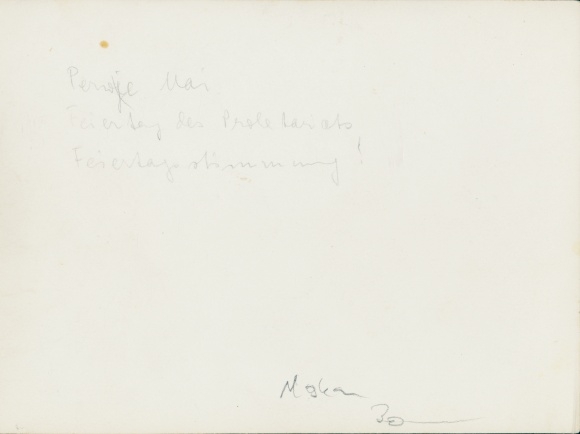 Perwoje Mai
Feiertag des Proletariats
Feiertagsstimmung!
Moskau